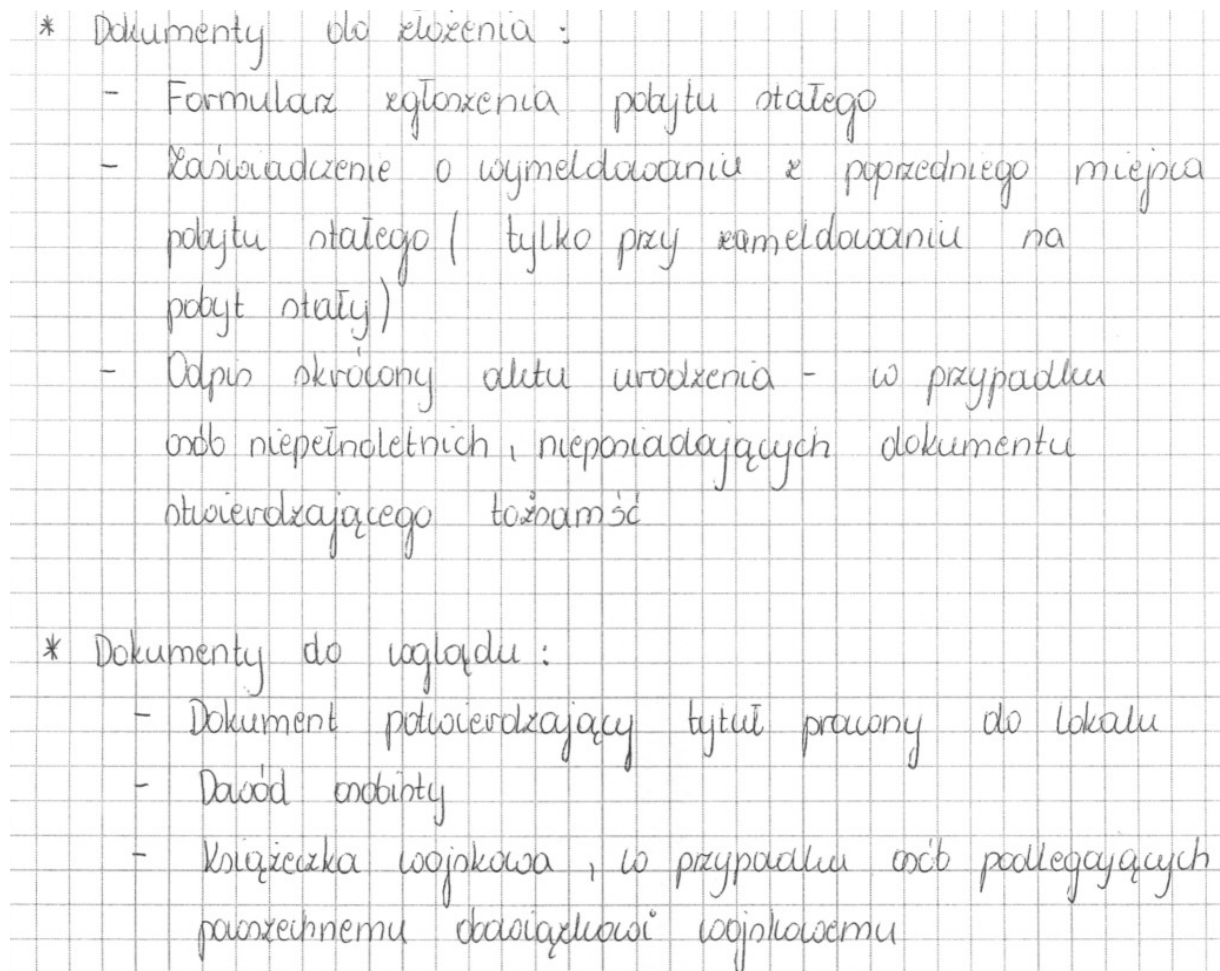 * Dokumenty do złożenia :
- Formularz zgłoszenia pobytu stałego
- Zaświadczenie o wymeldowaniu z poprzedniego miejsca
pobytu stałego ( tylko przy zameldowaniu na
pobyt stały)
- Odpis skrócony aktu urodzenia - w przypadku
osób niepełnoletnich, nieposiadających dokumentu
stwierdzającego tożsamść
* Dokumenty do wglądu :
- Dokument potwierdzający tytuł prawny do lokalu
- Dowód osobisty
- Książeczka wojskowa, w przypadku osób podlegających
powszechnemu obowiązkowi wojskowemu